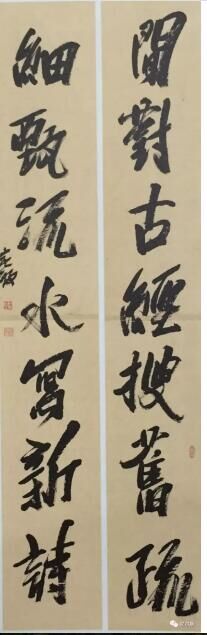 閒對古經搜舊疏
細甄流水寫新詩